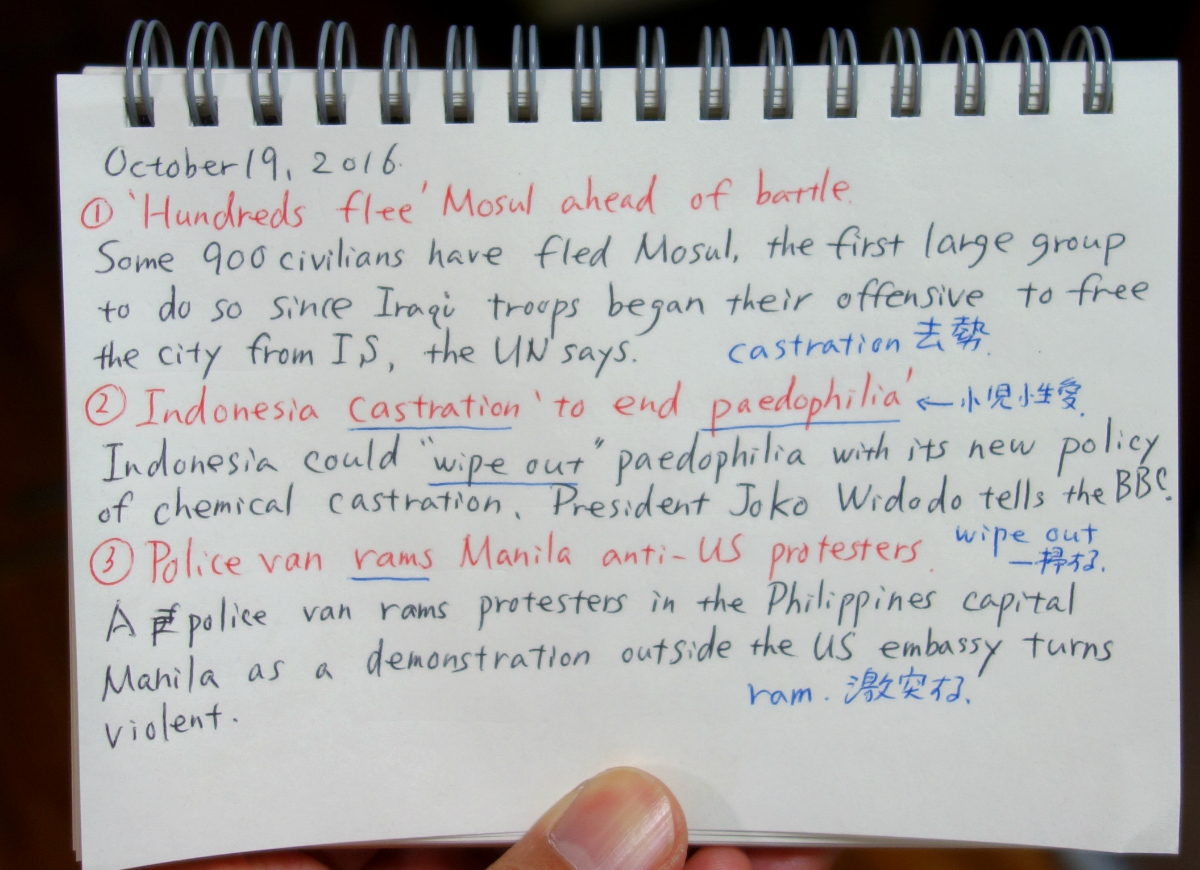 October 19, 2016.
① 'Hundreds flee' Mosul ahead of battle.
Some 900 civilians have fled Mosul, the first large group
to do so since Iraqi troops began their offensive to free
the city from IS, the UN says.
castration 去勢.
② Indonesia castration 'to end paedophilia' ← 小児性愛.
Indonesia could "wipe out" paedophilia with its new policy
of chemical castration, President Joko Widodo tells the BBC.
③ Police van rams Manila anti-US protesters.
wipe out
一掃する.
A police van rams protesters in the Philippines capital
Manila as a demonstration outside the US embassy turns
violent.
ram. 激突する.